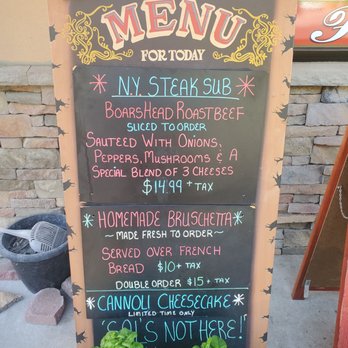 MENU
FOR TODAY
N.Y. STEAK SUB
BOARSHEAD ROASTBEEF
SLICED TO ORDER
SAUTEED WITH ONIONS,
PEPPERS, MUSHROOMS & A
SPECIAL BLEND OF 3 CHEESES
$14.99 + TAX
HOMEMADE BRUSCHETTA
~ MADE FRESH TO ORDER ~
SERVED OVER FRENCH
BREAD $10 + TAX
DOUBLE ORDER $15 + TAX
CANNOLI CHEESECAKE
LIMITED TIME ONLY
"SAL'S NOT HERE!"